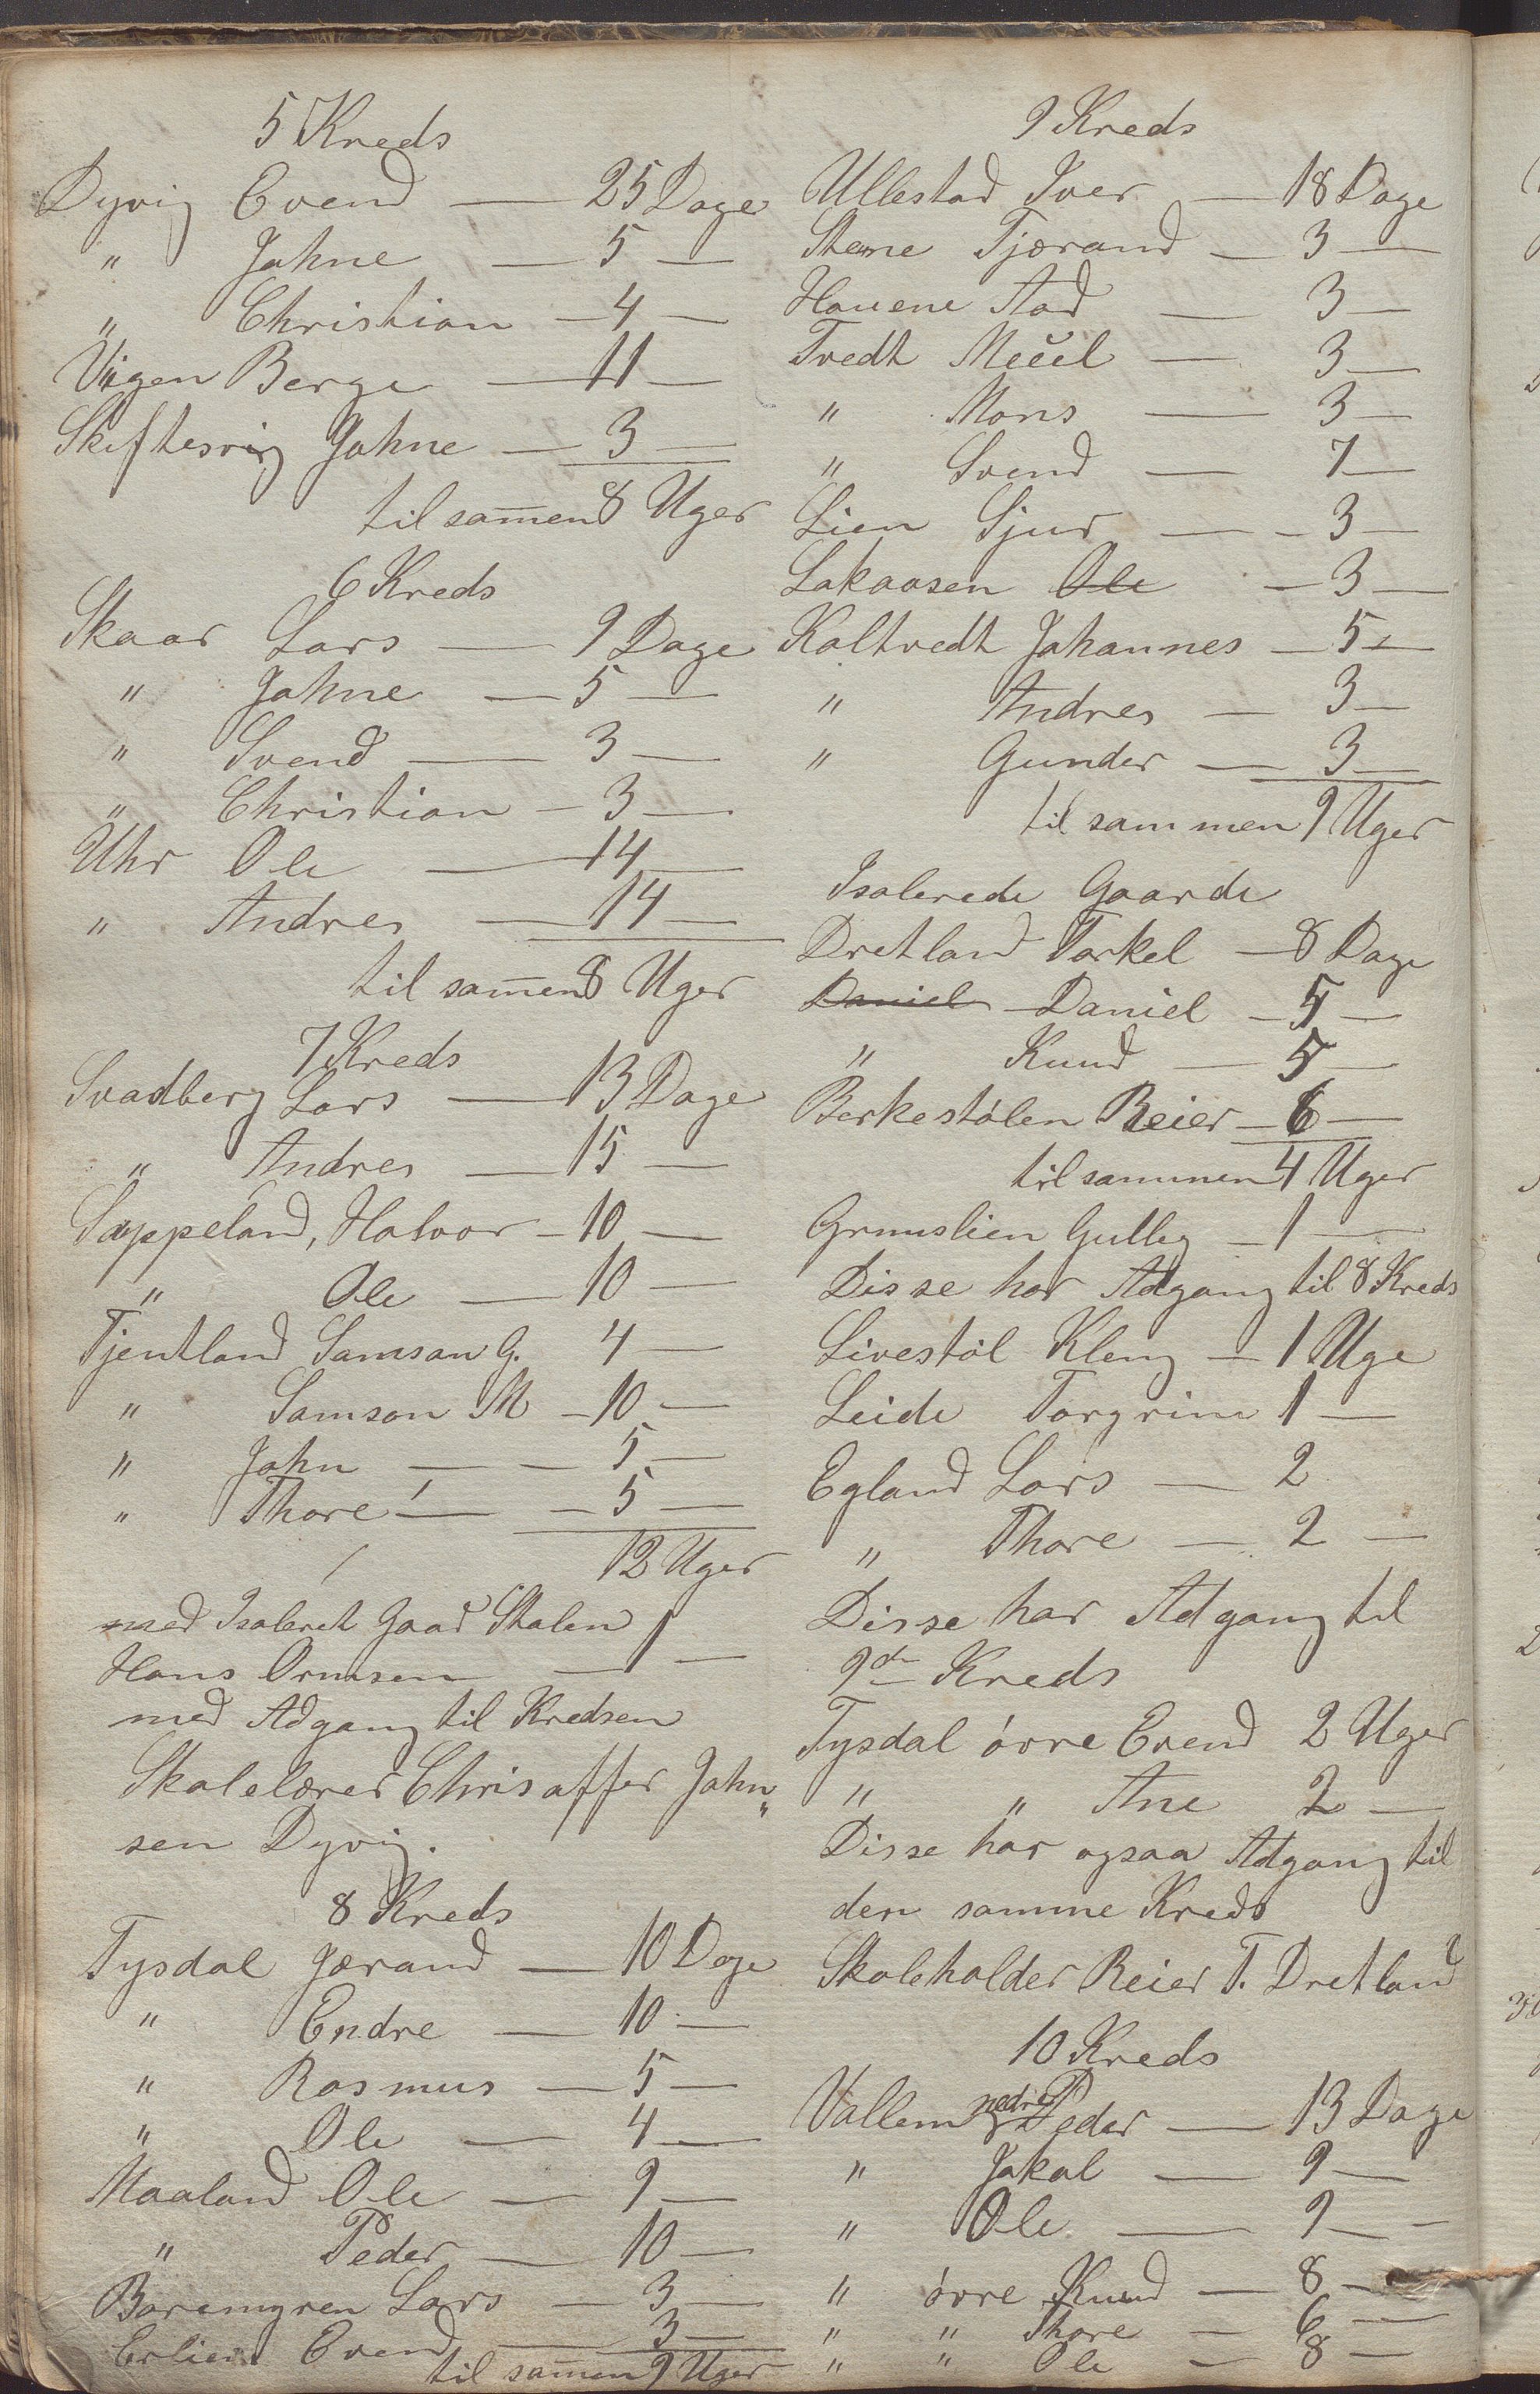 5 Kreds
Dyvig Evend — 25 Dage
" Johne — 5 —
" Christian — 4 —
Vigen Berge — 11 —
Skiftesvig Johne — 3 —
til sam̄en 8 Uger
6 Kreds
Skaar Lars — 9 Dage
" Johne — 5 —
" Svend — 3 —
" Christian — 3 —
Uhr Ole — 14 —
" Andres — 14 —
til sam̄en 8 Uger
7 Kreds
Svadberg Lars — 13 Dage
" Andres — 15 —
Sæppeland, Halvor — 10 —
" Ole — 10 —
Tjentland Samson G. 4 —
" Samson M — 10 —
" John — — 5 —
" Thore — — 5 —
12 Uger
med Isoleret Gaad Stølen
Hans Ormsen — 1 —
med Adgang til Kredsen
Skolelærer Chrisoffer John„
sen Dyvig.
8 Kreds
Tysdal Jærand — 10 Dage
" Endre — 10 —
" Rasmus — 5 —
" Ole — 4 —
Maaland Ole — 9 —
" Peder — 10 —
Boremyren Lars — 3 —
Erlien Evend — 3 —
til sam̄en 9 Uger
9 Kreds
Ullestad Iver — 18 Dage
Stene Tjærand — 3 —
Houene Aad — 3 —
Tvedt Meeel — 3 —
" Mons — 3 —
" Svend — 7 —
Lien Sjur — 3 —
Lakaasen Ole — 3 —
Koltvedt Johannes — 5 —
" Andres — 3 —
" Gunder — 3 —
til sammen 9 Uger
Isolerede Gaarde
Dretland Torkel — 8 Dage
Daniel Daniel — 5 —
" Knud — 5 —
Berkestölen Reier — 6 —
til sammen 4 Uger
Grunslien Gulleg — 1 —
Disse har Adgang til 8 Kreds
Livestöl Kleng — 1 Uge
Leide Torgrim 1 —
Egland Lars — 2
" Thore — 2 —
Disse har Adgang til
9de Kreds
Tysdal övre Evend 2 Uger
" " Ane 2 —
Disse har ogsaa Adgang til
den samme Kreds
Skoleholder Reier T. Dretland
10 Kreds
Vallem nedre Peder — 13 Dage
" Jakob — 9 —
" Ole — 9 —
" övre Knud — 8 —
" " Thore — 6 —
" " Ole — 8 —